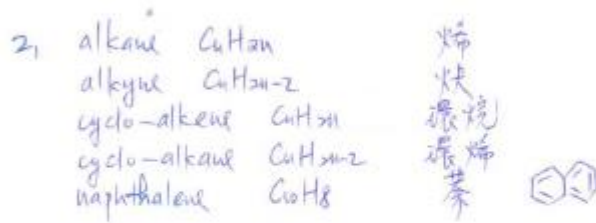 2, alkane CnH2n 烯
alkyne CnH2n-2 炔
cyclo-alkene CnH2n 環烷
cyclo-alkane CnH2n-2 環烯
naphthalene C10H8 萘